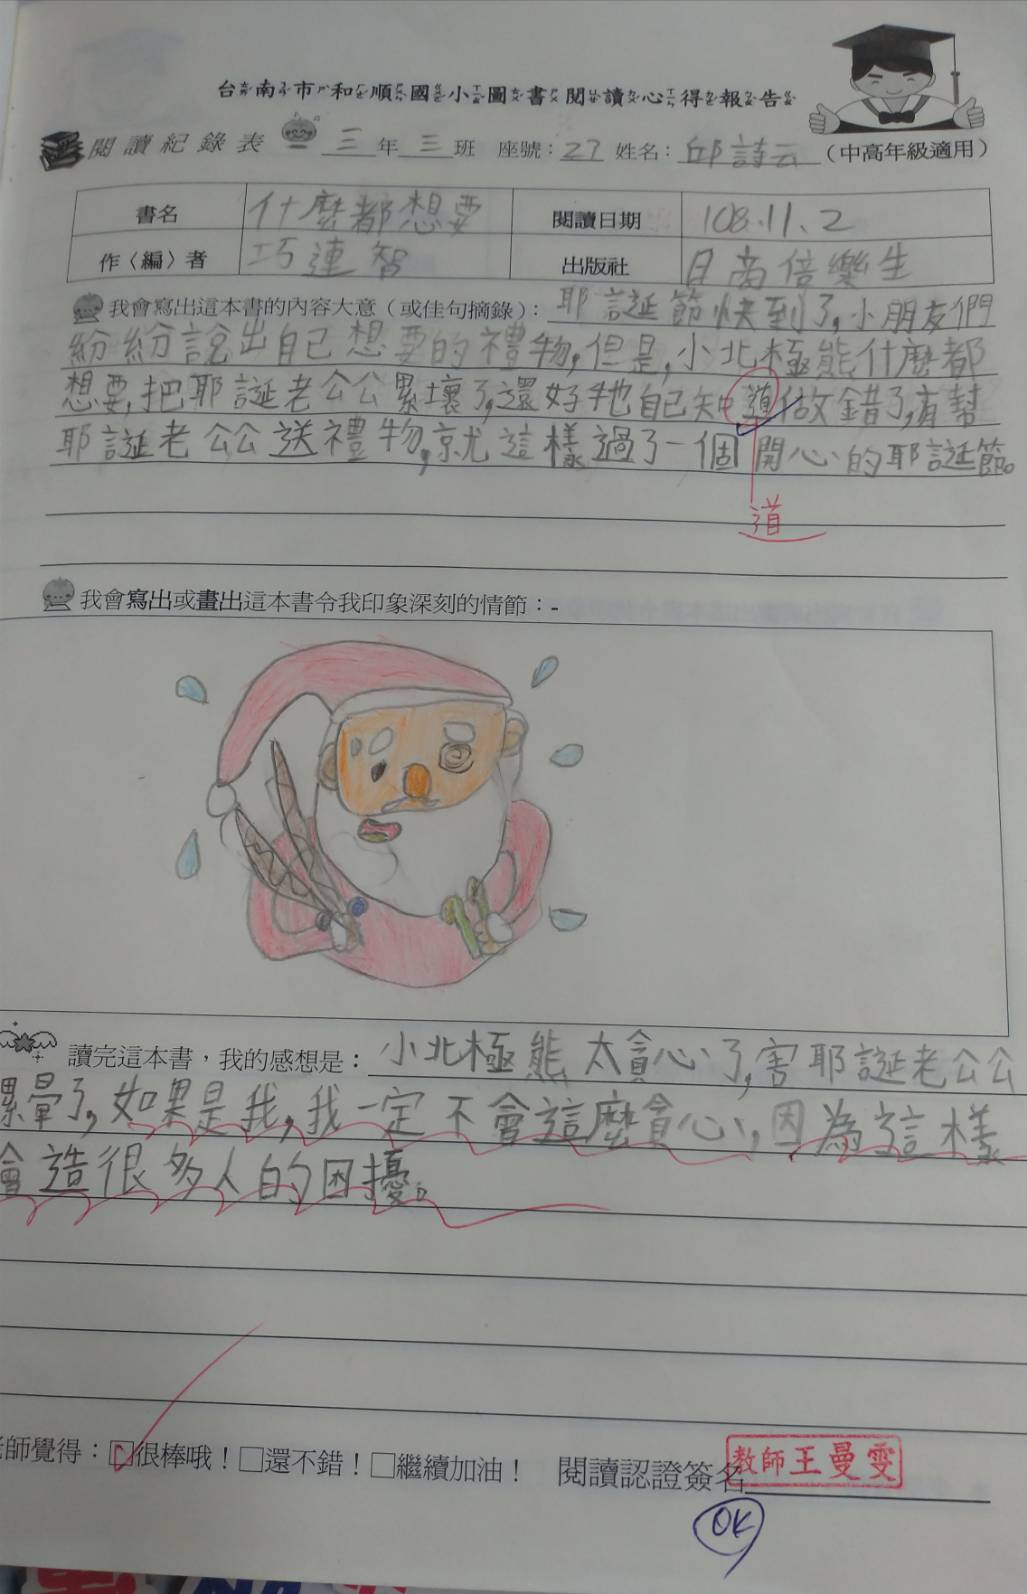 台南市和順國小圖書閱讀心得報告
閱讀紀錄表 三年三班 座號：27 姓名：邱詩云（中高年級適用）
書名 什麼都想要 閱讀日期 108.11.2
作〈編〉者 巧連智 出版社 日商倍樂生
我會寫出這本書的內容大意（或佳句摘錄）：耶誕節快到了,小朋友們
紛紛說出自己想要的禮物,但是,小北極熊什麼都
想要,把耶誕老公公累壞了,還好牠自己知道做錯了,有幫
耶誕老公公送禮物,就這樣過了一個開心的耶誕節。
道
我會寫出或畫出這本書令我印象深刻的情節：-
讀完這本書，我的感想是：小北極熊太貪心了,害耶誕老公公
累暈了,如果是我,我一定不會這麼貪心,因為這樣
會造很多人的困擾。
老師覺得：□很棒哦！□還不錯！□繼續加油！ 閱讀認證簽名 教師王曼雯
OK